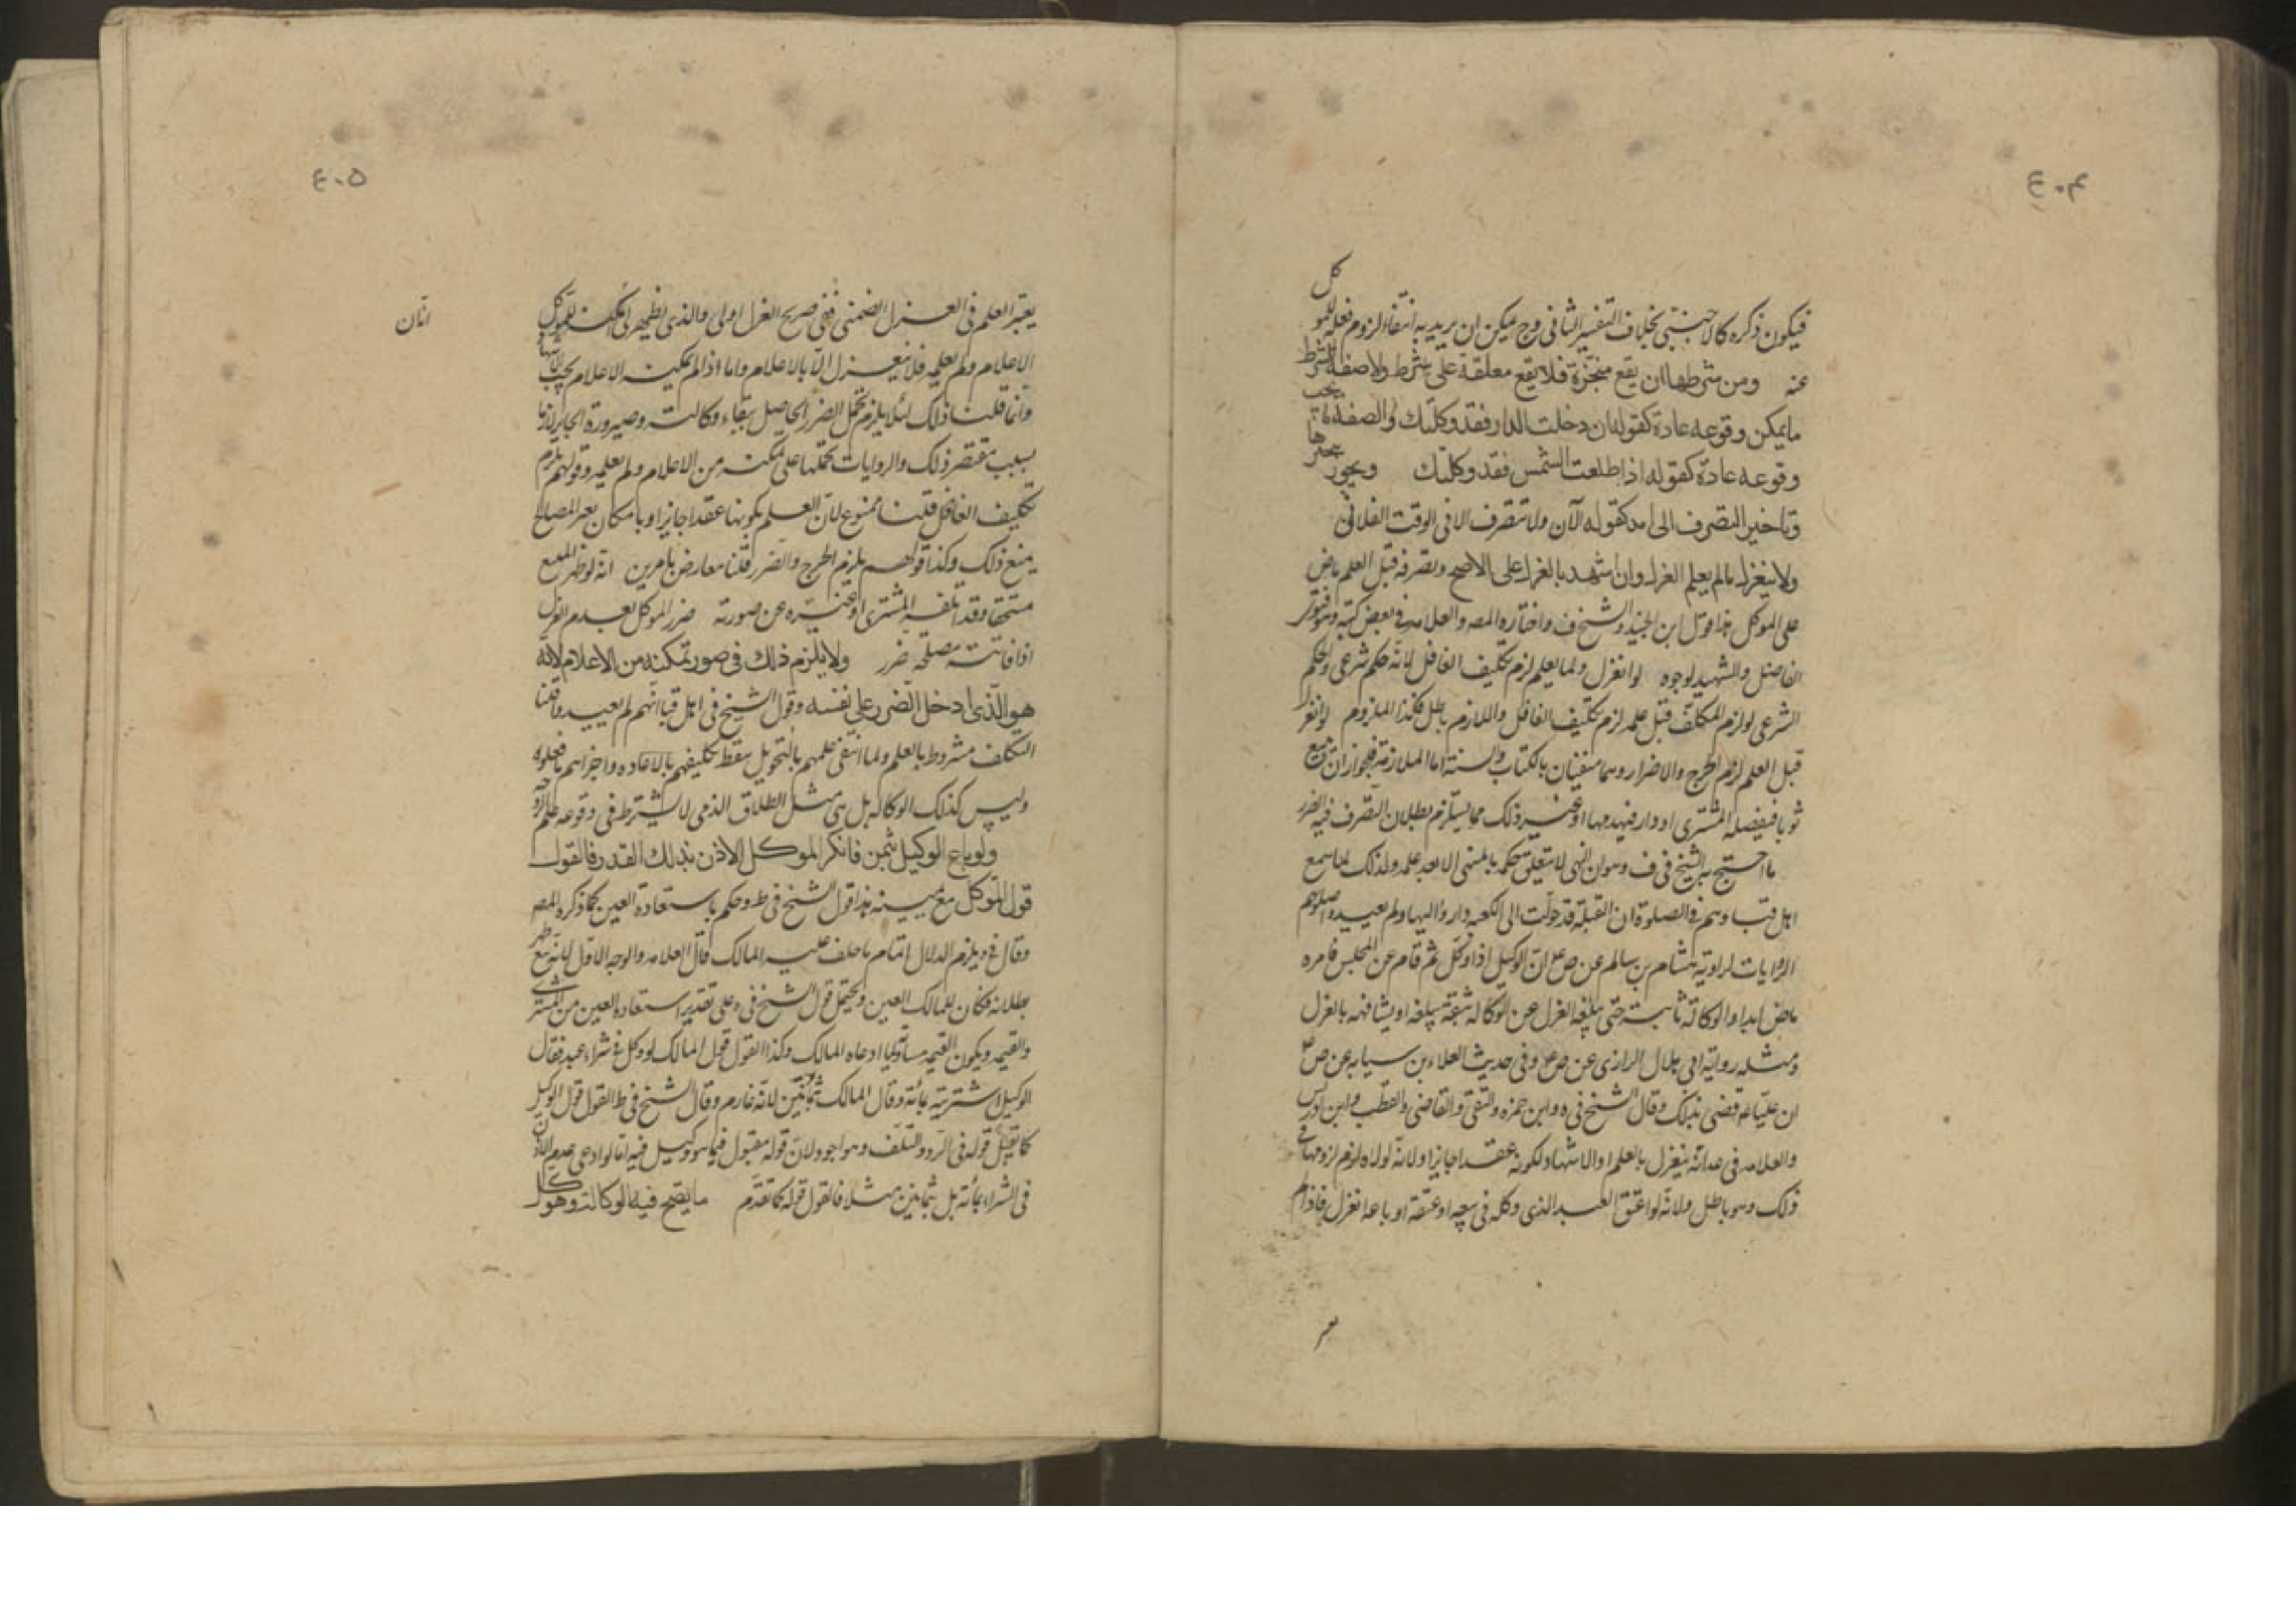 ٤٠٤
فيكون ذكره كالاجنبي بخلاف التفسير الثاني وح يمكن ان يريد به انتفاء لزوم فعله للموكل
عنه ومن شرطها ان يقع منجزة فلا يقع معلقة على شرط ولا صفة الشرط
ما يمكن وقوعه عادة كقوله ان دخلت الدار فقد وكلتك والصفة ما يجب
وقوعه عادة كقوله اذا طلعت الشمس فقد وكلتك ويجوز تنجيزها
وتاخير التصرف الى امد كقوله الآن ولا تتصرف الا في الوقت الفلاني
ولا ينعزل ما لم يعلم العزل وان اشهد بالعزل على الاصح وتصرفه قبل العلم ماض
على الموكل هذا قول ابن الجنيد والشيخ في ف واختاره المصـ والعلامه في بعض كتبه
الفاضل والشهيد لوجوه لو انعزل ولما يعلم لزم تكليف الغافل لانه حكم شرعي والحكم
الشرعي لو لزم المكلف قبل علمه لزم تكليف الغافل واللازم باطل فكذا الملزوم لو انعزل
قبل العلم لزم الحرج والاضرار وهما منفيان بالكتاب والسنة اما الملازمة فلجواز ان يبيع
ثوبا فيفصله المشتري او دار فيهدمها او غير ذلك مما يستلزم بطلان التصرف فيه الضرر
ما احتج به الشيخ في ف وهو ان النهي لا يتعلق حكمه بالمنهي الا بعد علمه ولذلك لما سمع
اهل قبا وهم في الصلوة ان القبلة قد حولت الى الكعبه داروا اليها ولم يعيدوا صلوتهم
الروايات لرواية هشام بن سالم عن ص ع ان الوكيل اذا وكل ثم قام عن المجلس فامره
ماض ابدا والوكالة ثابتة حتى يبلغه العزل عن الوكالة بثقة يبلغه او يشافهه بالعزل
ومثله رواية ابي هلال الرازي عن ص ع وفي حديث العلاء بن سيابه عن ص ع
ان عليا ع قضى بذلك وقال الشيخ في يه وابن حمزه والتقى والقاضي والقطب وابن ادريس
والعلامه في عد انه ينعزل بالعلم او الاشهاد لكونه عقدا جايزا ولانه لولاه لزم لزومها في
ذلك وهو باطل ولانه لو اعتق العبد الذي وكله في بيعه او عتقه او باعه انعزل فاذا لم
٤٠٥
يعتبر العلم في العزل الضمني ففي صريح العزل اولى والذي يظهر لي ان تمكن الموكل
الاعلام ولم يعلمه فلا ينعزل الا بالاعلام واما اذا لم يمكنه الاعلام يجب الاشهاد
وانما قلنا ذلك لئلا يلزم تحمل الضرر الحاصل ببقاء وكالته وصيرورة الجايز لازما
بسبب مقتصر ذلك والروايات نحملها على تمكنه من الاعلام ولم يعلمه وقولهم يلزم
تكليف الغافل قلنا ممنوع لان العلم بكونها عقدا جايزا وبامكان تغير المصالح
يمنع ذلك وكذا قولهم يلزم الحرج والضرر قلنا معارض بامرين انه لو ظهر المبيع
مستحقا وقد اتلفه المشتري او غيره عن صورته ضرر الموكل بعدم العزل
اذا فاتته مصلحة ضرر ولا يلزم ذلك في صور تمكنه من الاعلام لانه
هو الذي ادخل الضرر على نفسه وقول الشيخ في اهل قبا انهم لم يعيدوا قلنا
التكلف مشروط بالعلم ولما انتفى علمهم بالتحويل سقط تكليفهم بالاعاده واجزاهم ما فعلوه
وليس كذلك الوكاله بل هي مثل الطلاق الذي لا يشترط في وقوعه علم الزوجة
ولو باع الوكيل بثمن فانكر الموكل الاذن بذلك القدر فالقول
قول الموكل مع يمينه هذا قول الشيخ في ط وحكم باستعادة العين كما ذكره المصـ
وقال في يه يلزم الدلال اتمام ما حلف عليه المالك قال العلامه والوجه الاول لانه بيع ظهر
بطلانه فكان للمالك العين ويحتمل قول الشيخ في يه على تقدير استعادة العين من المشتري
والقيمه ويكون القيمه مساوية لما ادعاه المالك وكذا القول قول المالك لو وكل في شراء عبد فقال
الوكيل اشتريته بمائة وقال المالك بثمانين لانه غارم وقال الشيخ في ط القول قول الوكيل
كما يقبل قوله في الرد والتلف وهو اجود ولان قوله مقبول فيما هو وكيل فيه اما لو ادعى عدم الاذن
في الشراء بمائة بل بثمانين مثلا فالقول قوله كما تقدم ما يصح فيه الوكالة وهو كل